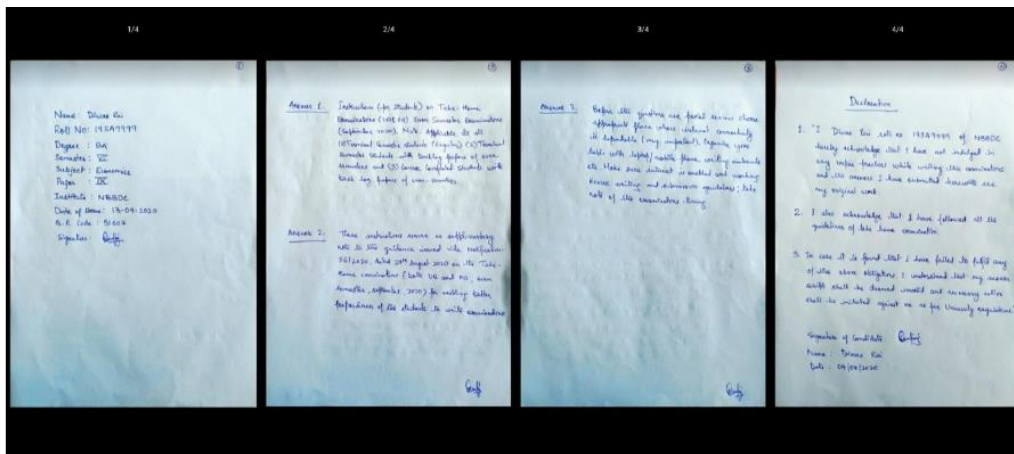 1/4
Name: Divas Rai
Roll No: 19SA9999
Degree : BA
Semester : VI
Subject : Economics
Paper : IX
Institute : NBBDC
Date of Exam : 13-09-2020
Q.P. Code : 51607
Signature :
2/4
Answer 1. Instructions (for Students) on Take-Home
Examinations (UG & PG) Even Semester Examinations
(September 2020). Note: Applicable to all
(1) Terminal Semester students (Regular) (2) Terminal
Semester students with backlog papers of even
semesters and (3) Course Completed students with
back log papers of even-semester.
Answer 2. These instructions serve as supplementary
note to the guidance issued vide Notification
56/2020, dated 29th August 2020 on the Take-
Home examinations (both UG and PG, even
semester, september, 2020) for enabling better
preparedness of the students to write examinations
3/4
Answer 3. Before the questions are posted online choose
appropriate place where internet connectivity
is dependable (very important). Organise your
table with laptop/mobile phone, writing materials
etc. Make sure internet is enabled and working
Revise writing and submission guidelines; take
note of the examination timing.
4/4
Declaration
1. "I Divas Rai roll no 19SA9999 of NBBDC
hereby acknowledge that I have not indulged in
any unfair practices while writing this examinations
and the answers I have submitted herewith are
my original work.
2. I also acknowledge that I have followed all the
guidelines of take home examination.
3. In case it is found that I have failed to fulfil any
of the above obligations, I understand that my answer
script shall be deemed invalid and necessary action
shall be initiated against me as per University regulations"
Signature of Candidate
Name : Divas Rai
Date : 09/09/2020